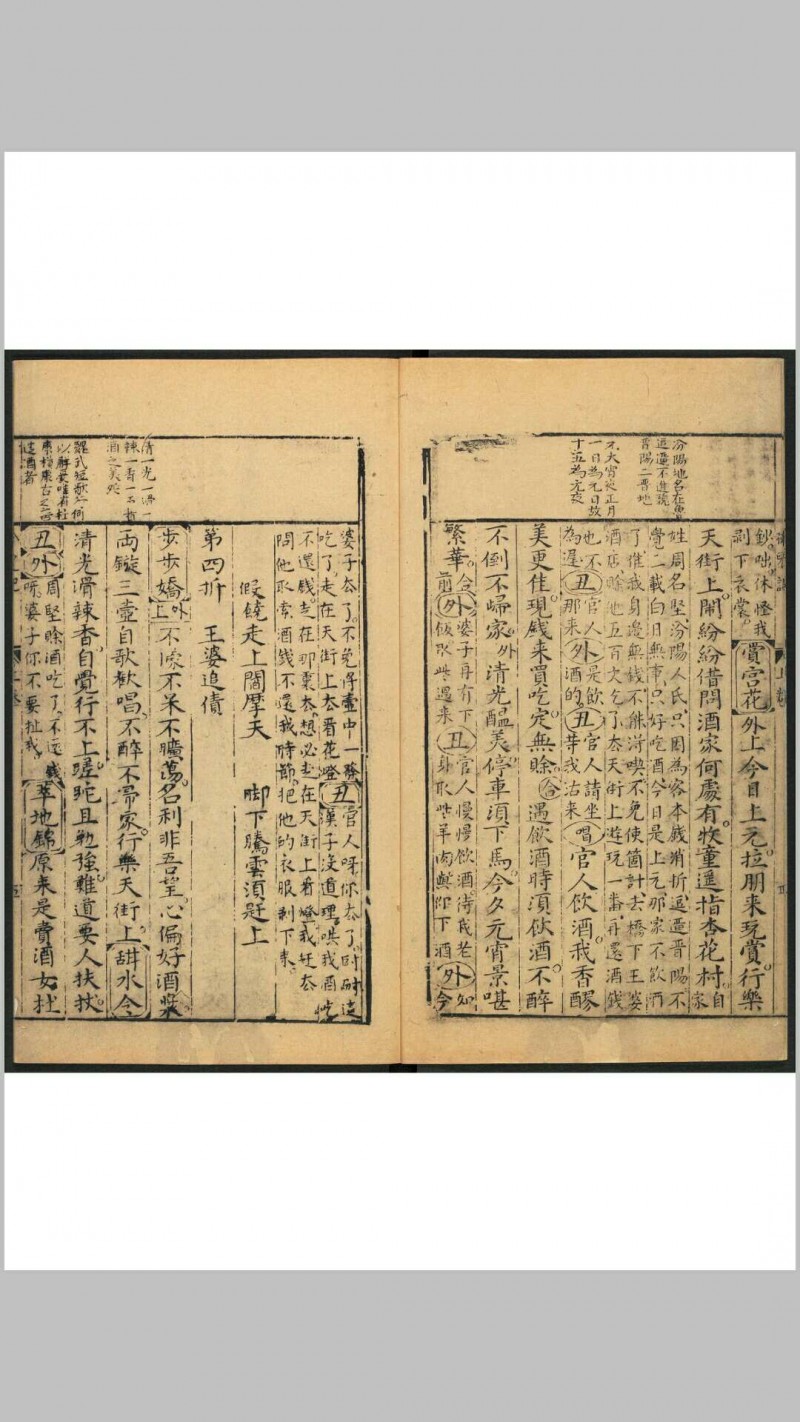 汾陽地名在魯
逗遛不進貌
晋陽二晋地
元大宵夾正月
一日為元日故
十五為元夜
鈔咄休怪我
剥下衣裳
賞宫花
外上今日上元拉朋来玩賞行樂
天街上閙紛紛借問酒家何處有牧童遥指杏花村自家
姓周名堅汾陽人氏只因為客本錢消折逗遛晋陽不
覺二載白日無事只好吃酒今日是上元那家不飲酒
了惟我身邊無錢不能浔喫不免使箇計去橋下王婆
酒店賖他五百文吃了去天街上遊玩一番再還酒錢
也不
為遲
丑
官人
那来
外
是飲
酒的
丑
官人請坐
等我沽来
唱
官人飲酒我香醪
美更佳現錢来買吃定無賖
合
遇飲酒時湏飲酒不醉
不倒不歸家
外
清光醖美停車湏下馬今夕元宵景堪
繁華
合
前
外
婆子再有下
飯取些過来
丑
官人慢慢飲酒待我老
身取些羊肉與你下酒
外
如
今
婆子去了不免浔壷中一發
吃了走在天街上去看花燈
丑
官人呀你去了
漢子没道理哄我酒吃
不還錢走在那裏去想必走在天街上看燈我赶去
問他取索酒錢不還我時節把他的衣服剥下来
假饒走上閻摩天
脚下騰雲湏赶上
清一光一滑一
辣一香一不省
酒之美処
魏武短歌云何
以解憂唯有杜
康
造酒者
第四折
王婆追債
步步嬌
外上
不俫不呆不曠荡名利非吾望心偏好酒漿
両鏇三壷自歌歓唱不醉不歸家行樂天街上
甜水令
清光滑辣香自覺行不上蹉跎且勉強難道要人扶扙
丑
外
周堅賖酒吃了不还錢
呀婆子你不要扯我
華地錦
原来是賣酒女杜